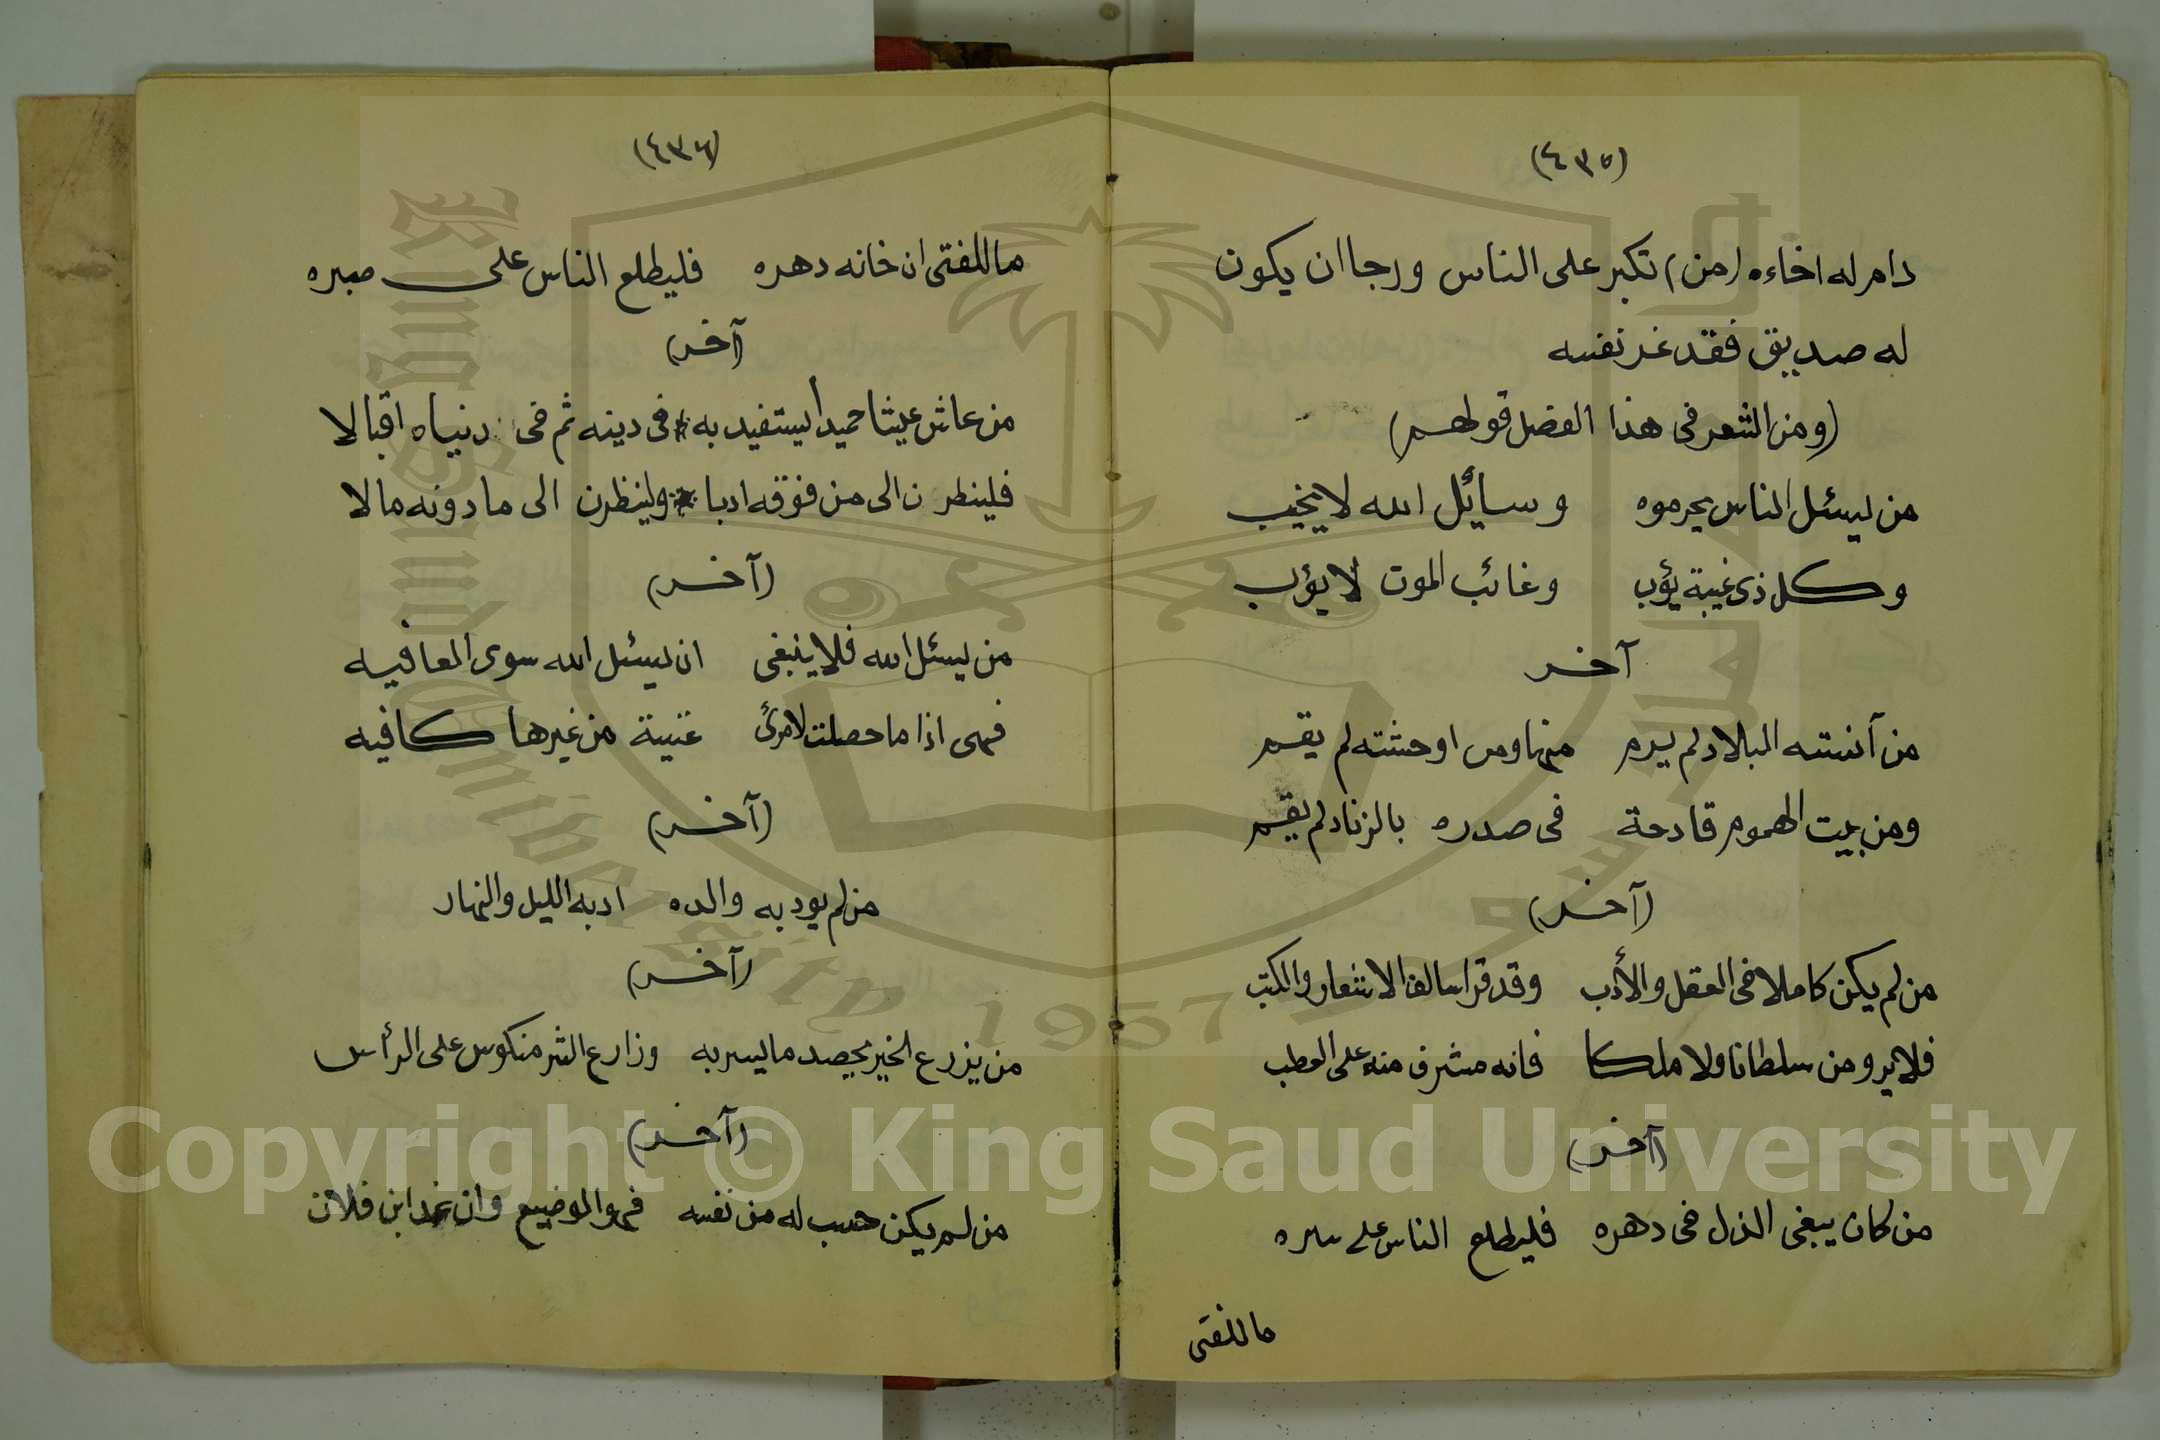 (٤٣٥)
دام له اخاءه (من) تكبر على الناس ورجا ان يكون
له صديق فقد غر نفسه
(ومن الشعر فى هذا الفصل قولهم)
من يسئل الناس يحرموه وسائل الله لا يخيب
وكل ذى غيبة يؤب وغائب الموت لا يؤب
آخر
من آنسته البلاد لم يرم منها ومن اوحشته لم يقم
ومن يبت الهموم قادحة فى صدره بالزناد لم يقم
(آخر)
من لم يكن كاملا فى العقل والأدب وقد قرا سالف الاشعار والكتب
فلا يرومن سلطانا ولا ملكا فانه مشرف منه على العطب
(آخر)
من كان يبغى الذل فى دهره فليطلع الناس على سره
ما للفتى
(٤٣٦)
ما للفتى ان خانه دهره فليطلع الناس على صبره
(آخر)
من عاش عيشا حميدا يستفيد به * فى دينه ثم فى دنياه اقبالا
فلينظرن الى من فوقه ادبا * ولينظرن الى ما دونه مالا
(آخر)
من يسئل الله فلا ينبغى ان يسئل الله سوى العافيه
فهى اذا ما حصلت لامرئ غنية من غيرها كافيه
(آخر)
من لم يودبه والده ادبه الليل والنهار
(آخر)
من يزرع الخير يحصد ما يسر به وزارع الشر منكوس على الرأس
(آخر)
من لم يكن حسب له من نفسه فهو الوضيع وان ابن فلان
Copyright © King Saud University
King Saud University 1957